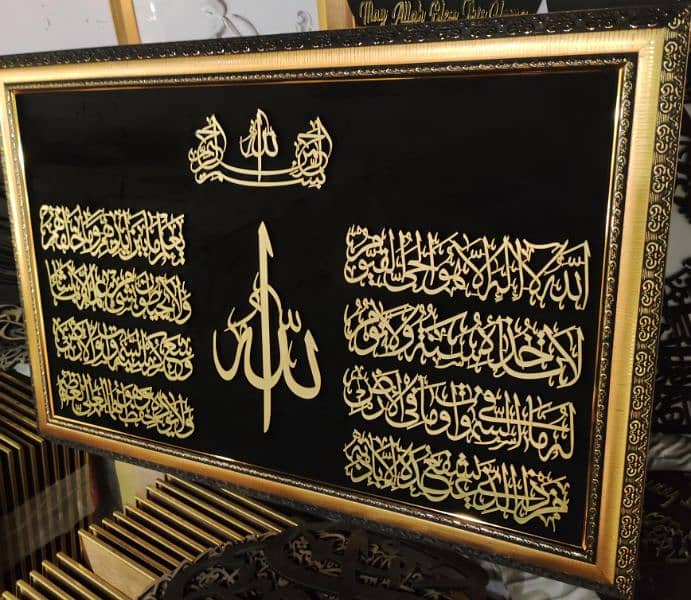 May Allah Bless This Home
بسم الله الرحمن الرحيم
الله لا إله إلا هو الحي القيوم
لا تأخذه سنة ولا نوم
له ما في السموات وما في الأرض
من ذا الذي يشفع عنده إلا بإذنه
الله
يعلم ما بين أيديهم وما خلفهم
ولا يحيطون بشيء من علمه إلا بما شاء
وسع كرسيه السموات والأرض
ولا يؤوده حفظهما وهو العلي العظيم